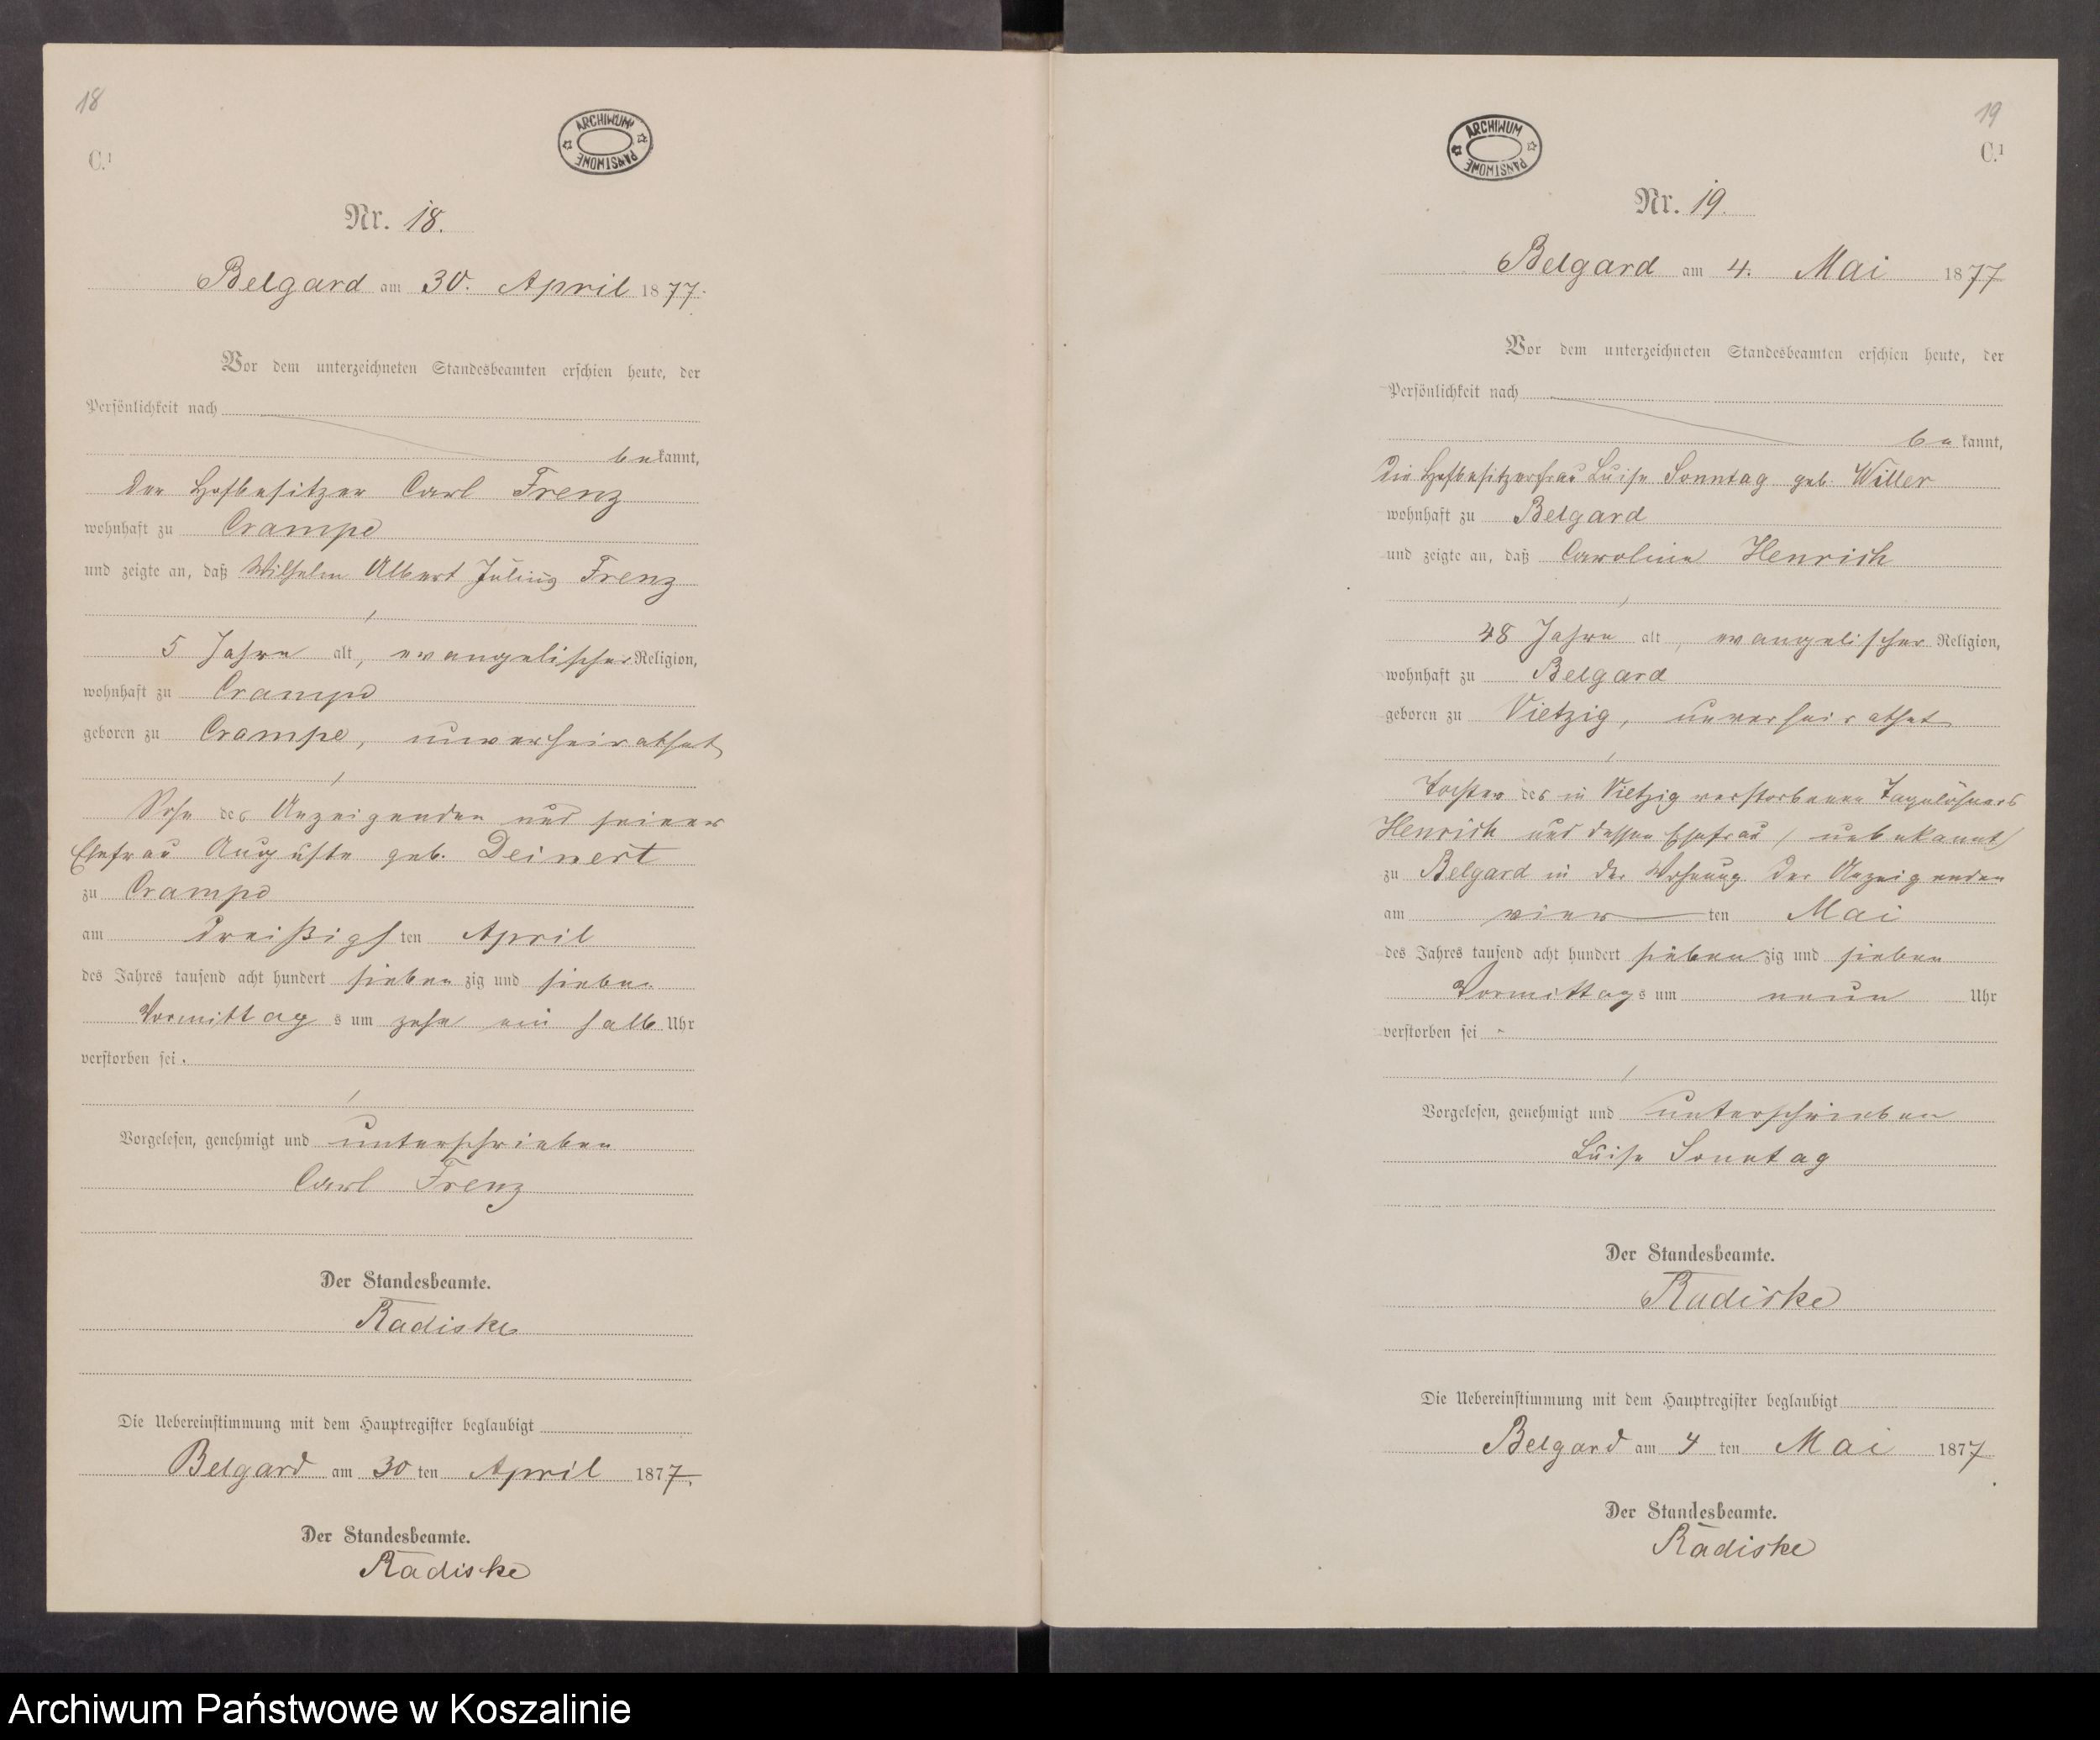 18
C.¹
ARCHIWUM PAŃSTWOWE
Nr. 18.
Belgard am 30. April 1877.
Vor dem unterzeichneten Standesbeamten erschien heute, der
Persönlichkeit nach
be kannt,
der Hofbesitzer Carl Frenz
wohnhaft zu Crampe
und zeigte an, daß Wilhelm Albert Julius Frenz
5 Jahre alt, evangelischer Religion,
wohnhaft zu Crampe
geboren zu Crampe, unverheirathet
Sohn des Anzeigenden und seiner
Ehefrau Auguste geb. Deinert
zu Crampe
am dreißigsten April
des Jahres tausend acht hundert siebenzig und sieben
Vormittags um zehn ein halb Uhr
verstorben sei.
Vorgelesen, genehmigt und unterschrieben
Carl Frenz
Der Standesbeamte.
Radiske
Die Uebereinstimmung mit dem Hauptregister beglaubigt
Belgard am 30 ten April 1877.
Der Standesbeamte.
Radiske
19
C.¹
ARCHIWUM PAŃSTWOWE
Nr. 19.
Belgard am 4. Mai 1877
Vor dem unterzeichneten Standesbeamten erschien heute, der
Persönlichkeit nach
be kannt,
die Hofbesitzerfrau Luise Sonntag geb. Willer
wohnhaft zu Belgard
und zeigte an, daß Caroline Henrich
48 Jahre alt, evangelischer Religion,
wohnhaft zu Belgard
geboren zu Vietzig, unverheirathet
Tochter des in Vietzig verstorbenen Tagelöhners
Henrich und dessen Ehefrau / unbekannt /
zu Belgard in der Wohnung der Anzeigenden
am vier ten Mai
des Jahres tausend acht hundert siebenzig und sieben
Vormittags um neun Uhr
verstorben sei
Vorgelesen, genehmigt und unterschrieben
Luise Sonntag
Der Standesbeamte.
Radiske
Die Uebereinstimmung mit dem Hauptregister beglaubigt
Belgard am 4 ten Mai 1877
Der Standesbeamte.
Radiske
Archiwum Państwowe w Koszalinie